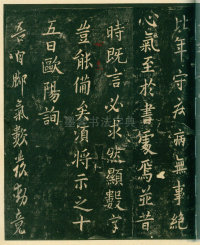 比年守疾病無事絶
心氣至於書處焉並昔
時既言必求然顯數字
豈能備矣須將示之十
五日歐陽詢
吾有鄙氣數發動竟